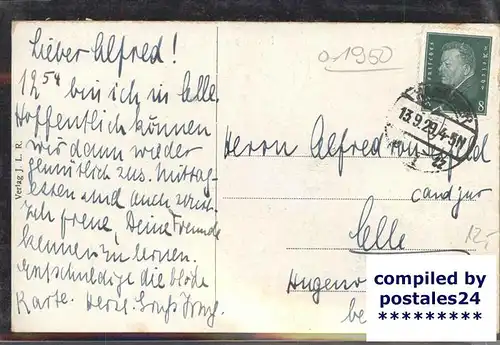 Lieber Alfred!
12⁵⁴ bin ich in Celle.
Hoffentlich können
wir dann wieder
gemütlich zus. Mittag-
essen und auch
ich freue, Deine Freunde
kennen zu lernen.
Entschuldige die blöde
Karte. Herzl.
Verlag J. L. R.
o.1950
DEUTSCHES REICH
8
13.9.29.4-5N
Herrn Alfred von
cand jur
Celle
12,-
compiled by
postales24
*********